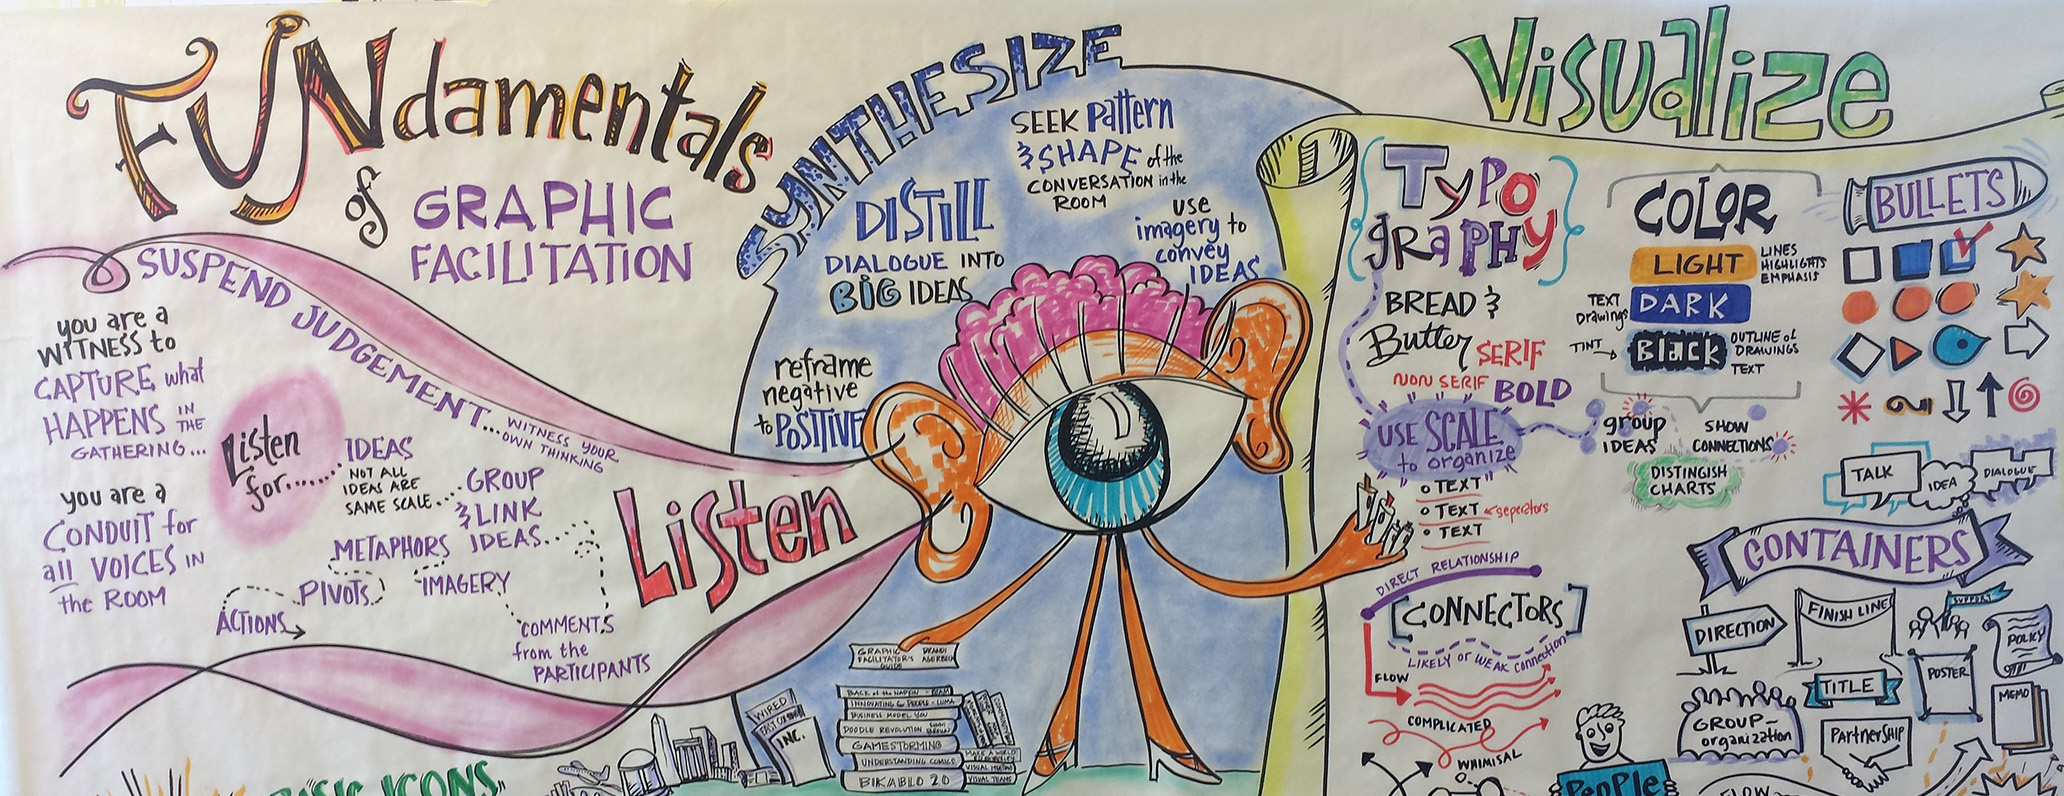 FUNdamentals
of GRAPHIC
FACILITATION
SUSPEND JUDGEMENT...
WITNESS YOUR
OWN THINKING
you are a
WITNESS to
CAPTURE what
HAPPENS IN THE
GATHERING...
you are a
CONDUIT for
all VOICES IN
the ROOM
Listen
for......
IDEAS
NOT ALL
IDEAS ARE
SAME SCALE...
GROUP
& LINK
IDEAS...
METAPHORS
IMAGERY
PIVOTS
ACTIONS
COMMENTS
from the
PARTICIPANTS
Listen
BASIC ICONS
SYNTHESIZE
SEEK pattern
& SHAPE of the
CONVERSATION in the
ROOM
DISTILL
DIALOGUE INTO
BIG IDEAS
use
imagery to
convey
IDEAS
reframe
negative
to POSITIVE
GRAPHIC
FACILITATOR'S
GUIDE
BRANDI
AGERBECK
WIRED
FAST COMPANY
INC.
BACK of the NAPKIN - ROAM
INNOVATING for PEOPLE - LUMA
BUSINESS MODEL YOU
DOODLE REVOLUTION
GAMESTORMING
UNDERSTANDING COMICS
BIKABLO 2.0
VISUAL MEETINGS
VISUAL TEAMS
Visualize
TYPO
GRAPHY
BREAD &
Butter SERIF
NON SERIF BOLD
USE SCALE
to organize
TEXT
TEXT seperators
TEXT
COLOR
LIGHT
LINES
HIGHLIGHTS
EMPHASIS
TEXT
Drawings
DARK
TINT
Black
OUTLINE of
DRAWINGS
TEXT
group
IDEAS
SHOW
CONNECTIONS
DISTINGISH
CHARTS
BULLETS
TALK
IDEA
DIALOGUE
DIRECT RELATIONSHIP
[CONNECTORS]
LIKELY or WEAK connection
FLOW
COMPLICATED
WHIMISAL
CONTAINERS
DIRECTION
FINISH LINE
SUPPORT
POLICY
TITLE
POSTER
MEMO
GROUP-
organization
PartnerSHIP
PEOPLE
FLOW